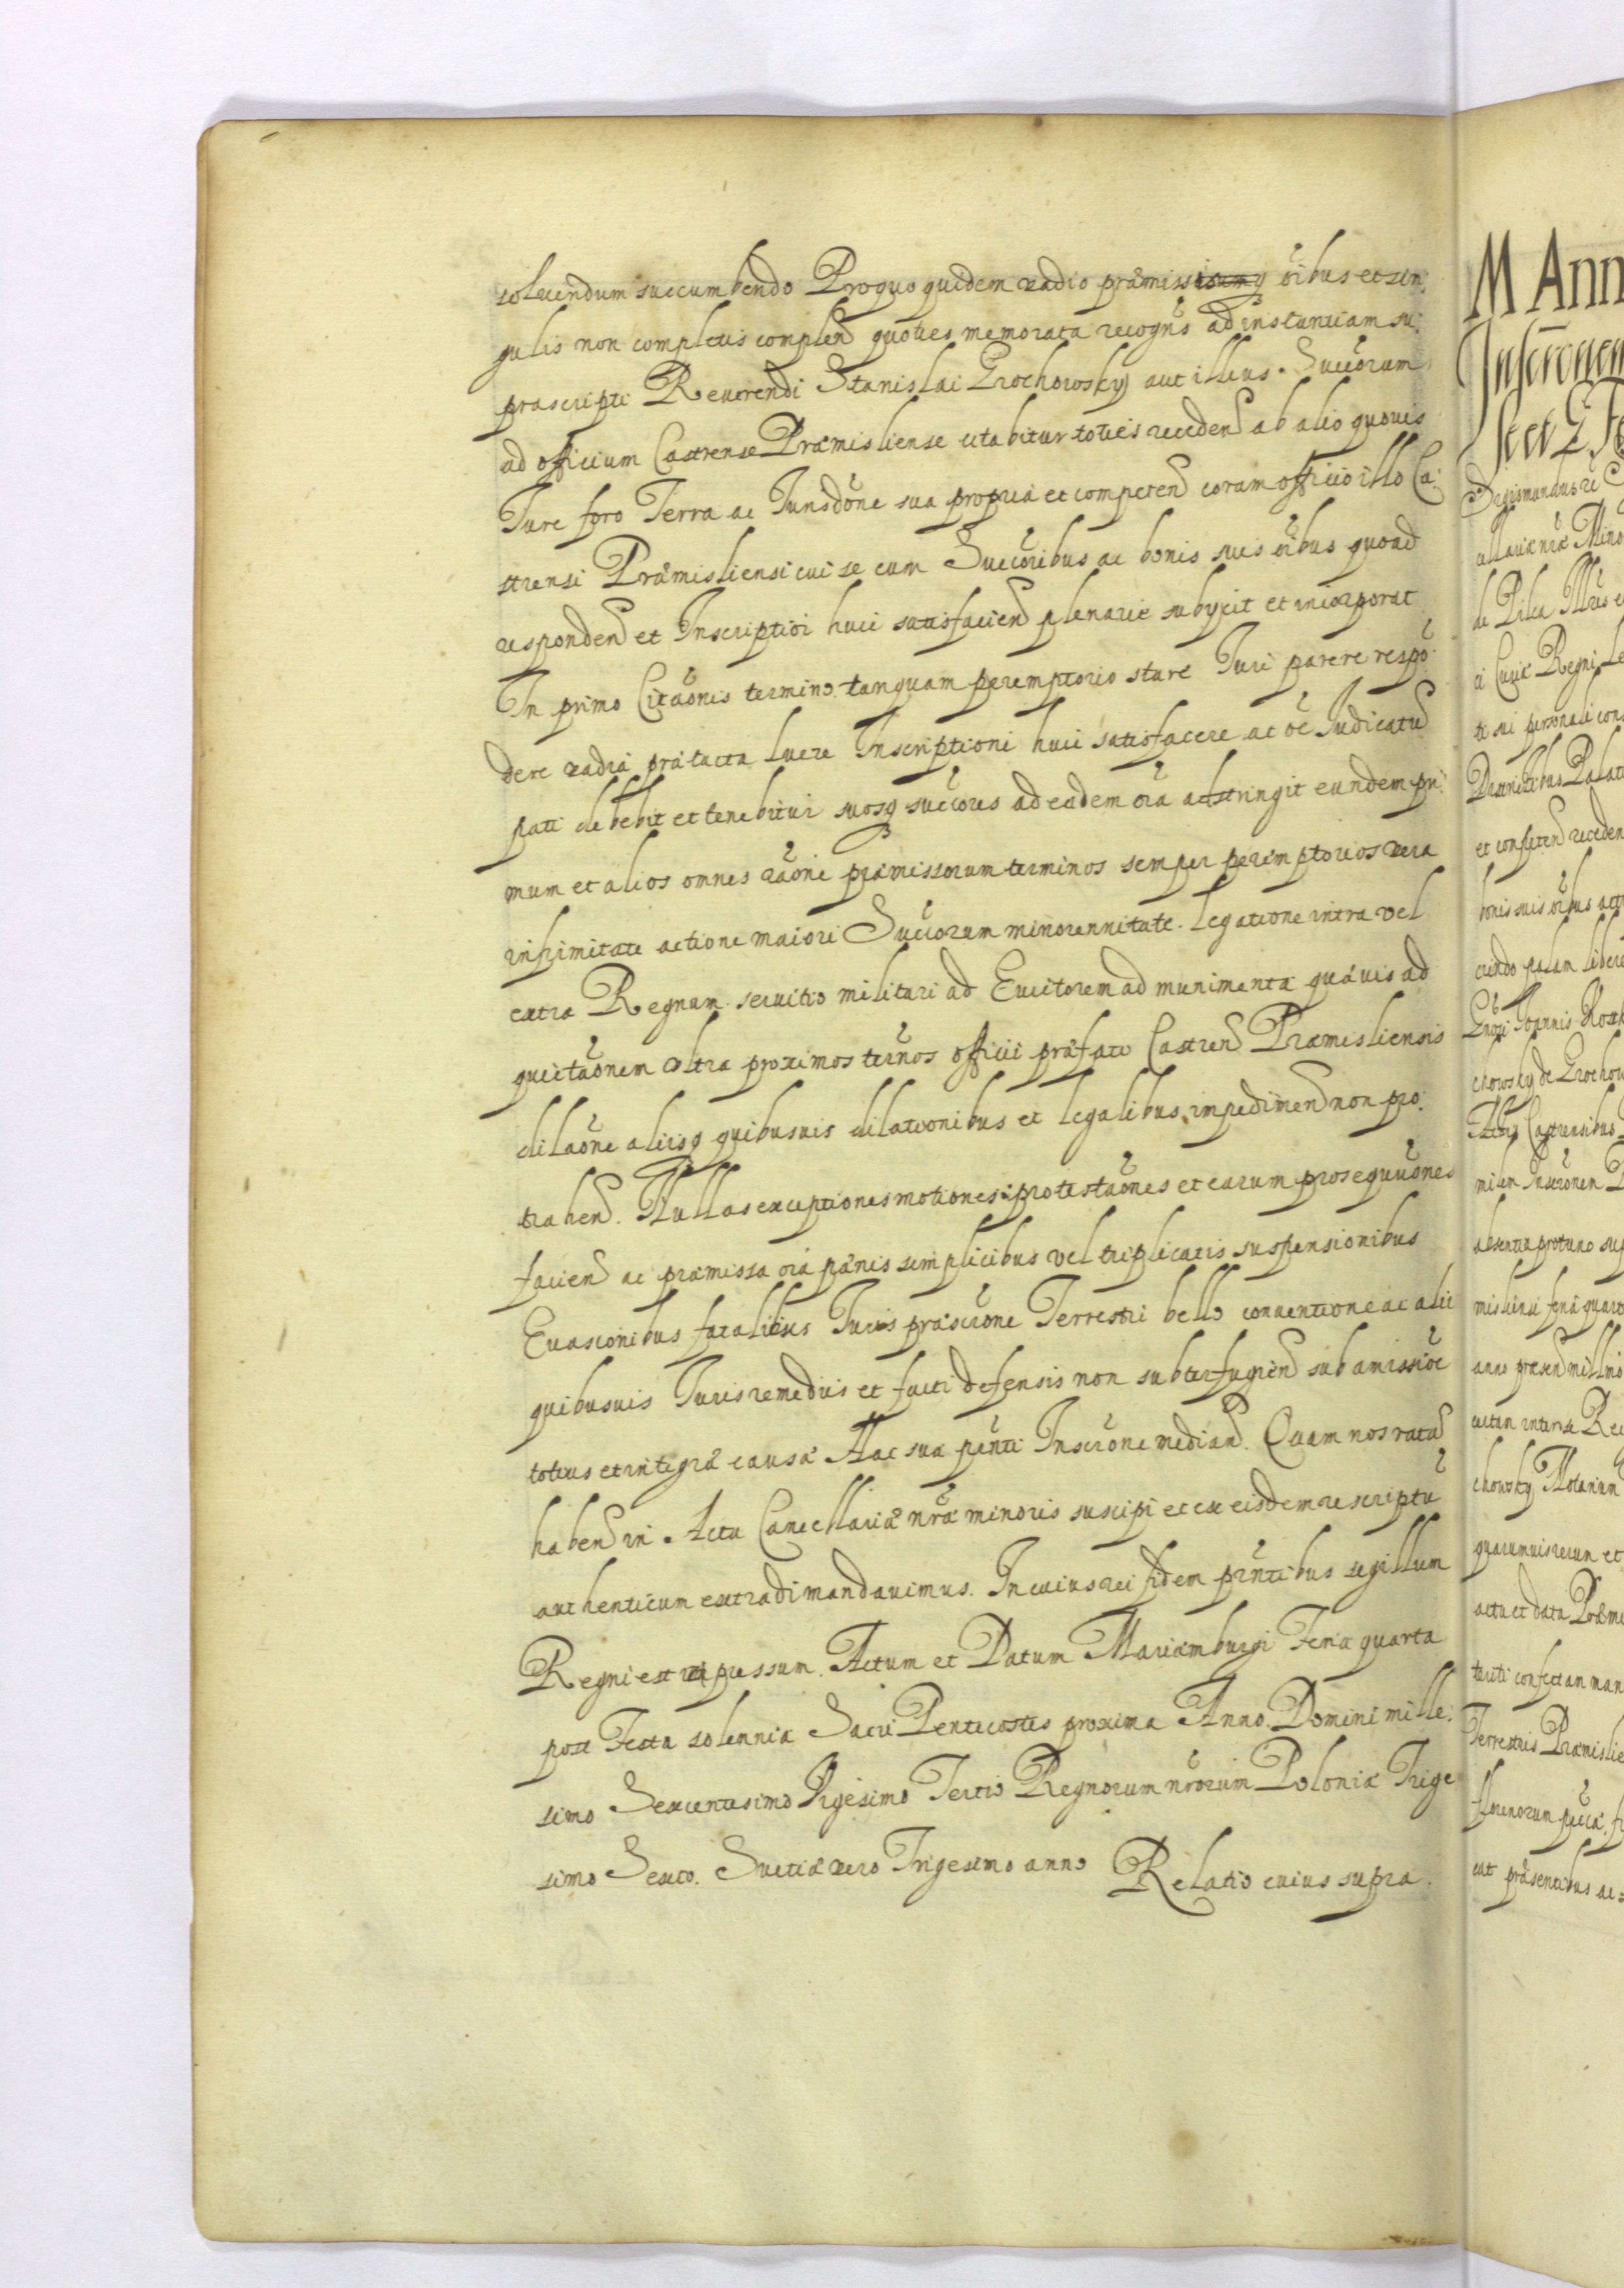 soluendum succumbendo Pro quo quidem vadio præmissis oĩbus et sin:
gulis non completis complen̄ quoties memorata recogn̄s ad instantiam su:
prascripti Reuerendi Stanislai Grochowsky aut illius Succorum
ad officium Castrense Præmisliense citabitur toties receden̄ ab alio quouis
Jure foro Terra ac Jurisdõne sua propria et competen̄ coram officio illo Ca:
strensi Præmisliensi cui se cum Succoribus ac bonis suis oĩbus quoad
responden̄ et Inscriptioi huic satisfacien̄ plenarie subijcit et incorporat
In primo Citaõnis termino tanquam peremptorio stare Juri parere respõ:
dere vadia prætacta luere Inscriptioni huic satisfacere ac oẽ Judicatũ
pati debebit et tenebitur suosq succores ad eadem oĩa adstringit eundem pri:
mum et alios omnes rãone præmissorum terminos semper peremptorios vera
infirmitate actione maiori Succorum minorennitate legatione intra vel
extra Regnum seruitio militari ad Exercitorem ad munimenta quæuis ad
quietaõnem vltra proximos terños officii præfati Castren̄ Præmisliensis
dilaõne aliisq quibusuis dilationibus et legalibus impedimen̄ non pro:
trahen̄ Nullas exceptiones motiones protestaõnes et earum prosequuõnes
facien̄ ac præmissa oĩa pænis simplicibus vel triplicatis suspensionibus
Euasionibus fatalibus Juris præscrõne Terrestri bello conuentione ac alii
quibusuis Juris remediis et facti defensis non subterfugien̄ sub amissiõe
totius et integræ causæ Hac sua pñti Inscrõne median̄. Quam nos ratã
haben̄ in Acta Cancellariæ nr̃æ minoris suscipi et ex eisdem rescriptũ
authenticum extradi mandauimus. In cuius rei fidem pñtibus sigillum
Regni est impressum. Actum et Datum Mariæmburgi Feria quarta
post Festa solennia Sacri Pentecostes proxima Anno Domini mille:
simo Sexcentesimo Vigesimo Tertio Regnorum nr̃orum Poloniæ Trige
simo Sexto. Suetiæ vero Trigesimo anno Relatio cuius supra.
M Ann
Inscrõnem
Sigismundus
de Pilca Illũs
Curiæ Regni
te sui personali cons
et competen̄ receden
bonis suis oĩbus
palam libere
Joannis
Actis Castrensibus
absentia
anno præsen̄ millmo
quarumuis rerum et
actu et data Præmi
Terrestris Præmislie
florenorum
præsentibus ac